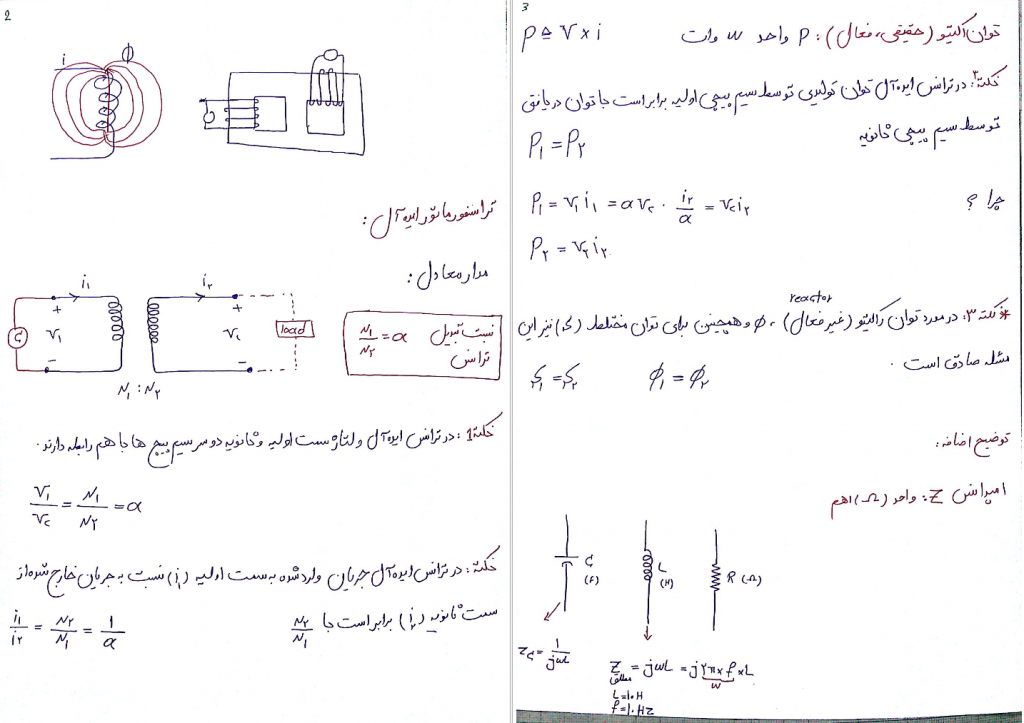 2
i
ϕ
ترانسفورماتور ایده آل :
مدار معادل :
i₁
i₂
+
+
G
V₁
V₂
load
−
−
N₁ : N₂
نسبت تبدیل N₁/N₂ = α
ترانس
نکته 1 : در ترانس ایده آل ولتاژ سمت اولیه و ثانویه دو سر سیم پیچ ها با هم رابطه دارند.
V₁/V₂ = N₁/N₂ = α
نکته : در ترانس ایده آل جریان وارد شده به سمت اولیه (i₁) نسبت به جریان خارج شده از
سمت ثانویه (i₂) برابر است با N₂/N₁
i₁/i₂ = N₂/N₁ = 1/α
3
توان اکتیو (حقیقی، فعال) : P واحد W وات P ≜ V × i
نکته ۲: در ترانس ایده آل توان تولیدی توسط سیم پیچی اولیه برابر است با توان دریافتی
توسط سیم پیچی ثانویه
P₁ = P₂
چرا ؟ P₁ = V₁ i₁ = α V₂ . i₂/α = V₂ i₂
P₂ = V₂ i₂
reactor
* نکته ۳: در مورد توان راکتیو (غیر فعال) ، ϕ و همچنین برای توان مختلط (S) نیز این
مسئله صادق است .
S₁ = S₂ ϕ₁ = ϕ₂
توضیح اضافه:
امپدانس Z : واحد (Ω) اهم
C
(F)
L
(H)
R (Ω)
Z_C = 1/jωL
Z = jωL = j۲π × f × L
مطلق
ω
L = ۱۰ H
f = ۱۰ Hz